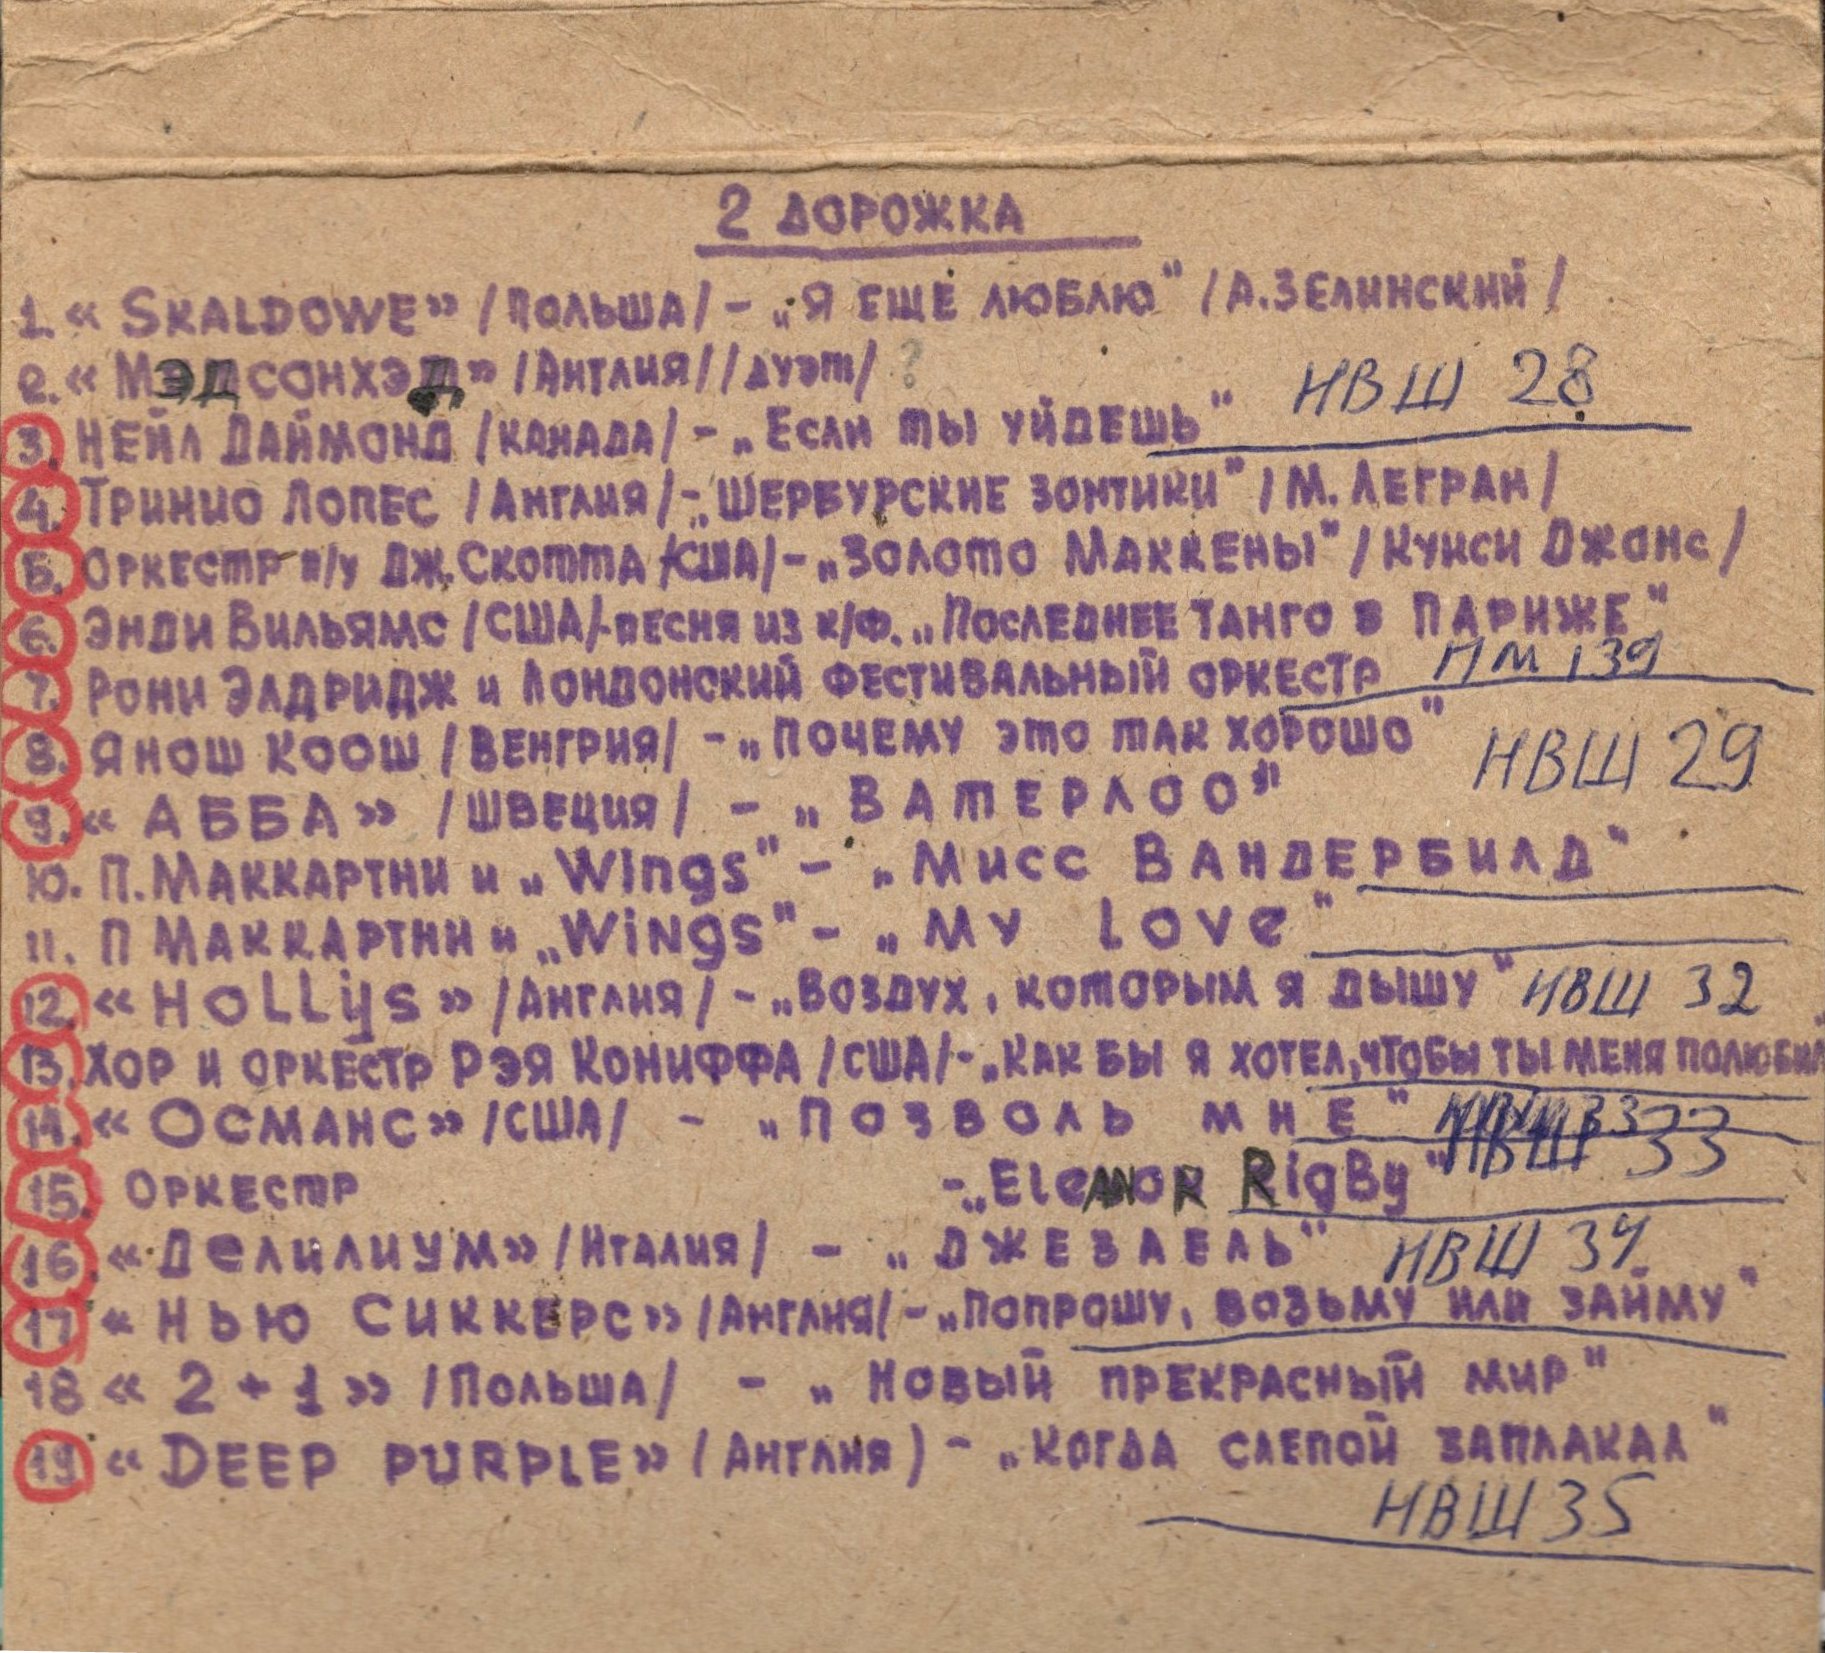 2 ДОРОЖКА
1. «SKALDOWE» /ПОЛЬША/ – „Я ЕЩЕ ЛЮБЛЮ" /А.ЗЕЛИНСКИЙ/
2. «МЭДСОНХЭД» /АНГЛИЯ//ДУЭТ/ ?
НВШ 28
3. НЕЙЛ ДАЙМОНД /КАНАДА/ – „ЕСЛИ ТЫ УЙДЕШЬ"
4. ТРИНИО ЛОПЕС /АНГЛИЯ/ – „ШЕРБУРСКИЕ ЗОНТИКИ" /М. ЛЕГРАН/
5. ОРКЕСТР П/У ДЖ. СКОТТА /США/ – „ЗОЛОТО МАККЕНЫ" /КУИСИ ДЖОНС/
6. ЭНДИ ВИЛЬЯМС /США/ – ПЕСНЯ ИЗ К/Ф. „ПОСЛЕДНЕЕ ТАНГО В ПАРИЖЕ"
7. РОНИ ЭЛДРИДЖ И ЛОНДОНСКИЙ ФЕСТИВАЛЬНЫЙ ОРКЕСТР НМ 139
8. ЯНОШ КООШ /ВЕНГРИЯ/ – „ПОЧЕМУ ЭТО ТАК ХОРОШО"
НВШ 29
9. «АББА» /ШВЕЦИЯ/ – „ВАТЕРЛОО"
10. П. МАККАРТНИ И „Wings" – „МИСС ВАНДЕРБИЛД"
11. П МАККАРТНИ И „WiNgs" – „MY love"
12. «HOLLijs» /АНГЛИЯ/ – „ВОЗДУХ, КОТОРЫМ Я ДЫШУ" НВШ 32
13. ХОР И ОРКЕСТР РЭЯ КОНИФФА /США/ – „КАК БЫ Я ХОТЕЛ, ЧТОБЫ ТЫ МЕНЯ ПОЛЮБИЛ"
14. «ОСМАНС» /США/ – „ПОЗВОЛЬ МНЕ"
15. ОРКЕСТР – „EleANOR RigBy" НВШ 33
16. «ДЕЛИЛИУМ» /ИТАЛИЯ/ – „ДЖЕЗАЕЛЬ" НВШ 34
17. «НЬЮ СИККЕРС» /АНГЛИЯ/ – „ПОПРОШУ, ВОЗЬМУ ИЛИ ЗАЙМУ"
18 «2+1» /ПОЛЬША/ – „НОВЫЙ ПРЕКРАСНЫЙ МИР"
19 «DEEP PURPLE» /АНГЛИЯ) – „КОГДА СЛЕПОЙ ЗАПЛАКАЛ"
НВШ 35